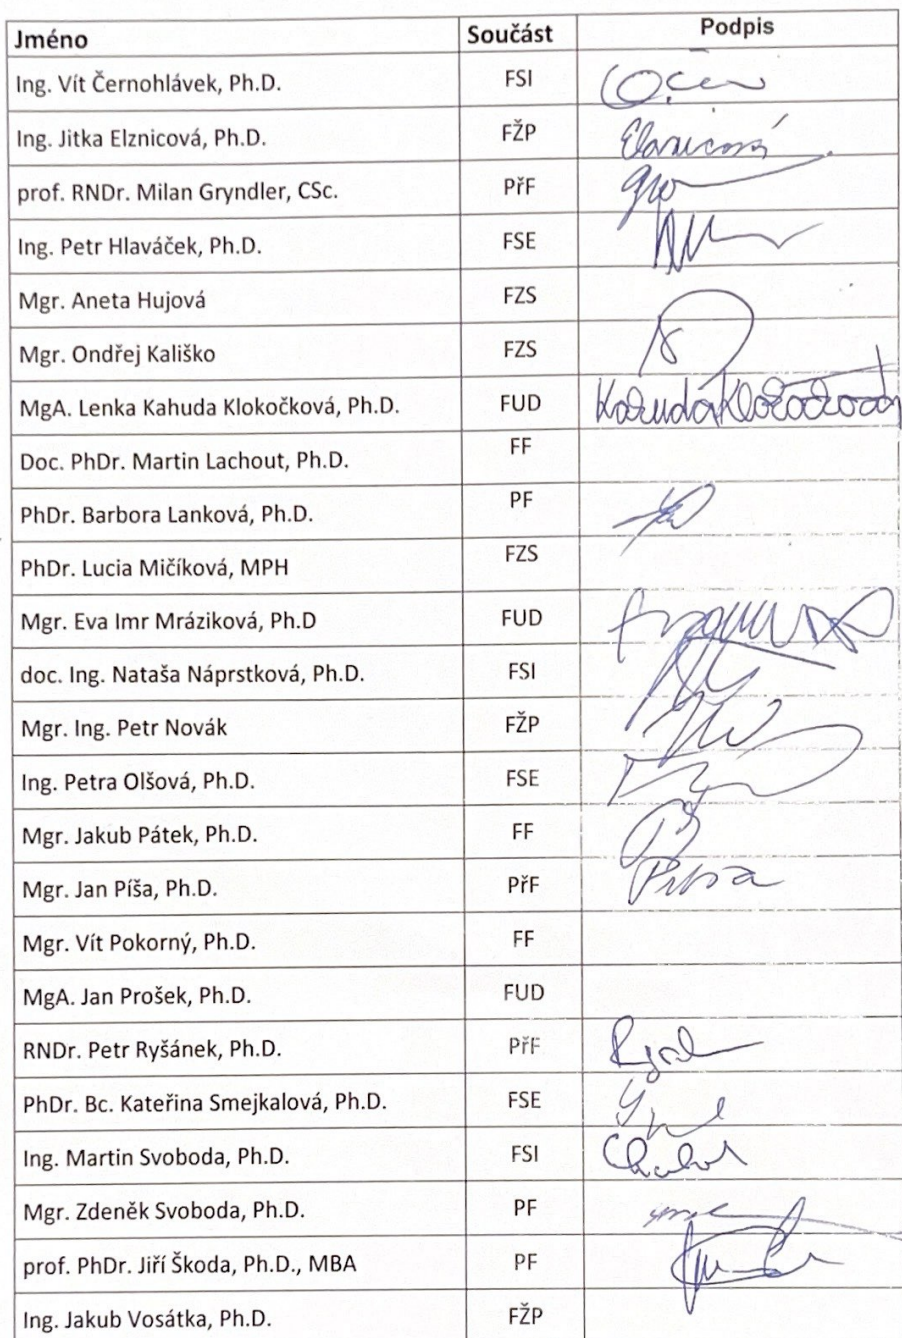 Jméno Součást Podpis
Ing. Vít Černohlávek, Ph.D. FSI
Ing. Jitka Elznicová, Ph.D. FŽP Elznicová
prof. RNDr. Milan Gryndler, CSc. PřF
Ing. Petr Hlaváček, Ph.D. FSE
Mgr. Aneta Hujová FZS
Mgr. Ondřej Kališko FZS
MgA. Lenka Kahuda Klokočková, Ph.D. FUD
Doc. PhDr. Martin Lachout, Ph.D. FF
PhDr. Barbora Lanková, Ph.D. PF
PhDr. Lucia Mičíková, MPH FZS
Mgr. Eva Imr Mráziková, Ph.D FUD
doc. Ing. Nataša Náprstková, Ph.D. FSI
Mgr. Ing. Petr Novák FŽP
Ing. Petra Olšová, Ph.D. FSE
Mgr. Jakub Pátek, Ph.D. FF
Mgr. Jan Píša, Ph.D. PřF
Mgr. Vít Pokorný, Ph.D. FF
MgA. Jan Prošek, Ph.D. FUD
RNDr. Petr Ryšánek, Ph.D. PřF
PhDr. Bc. Kateřina Smejkalová, Ph.D. FSE
Ing. Martin Svoboda, Ph.D. FSI
Mgr. Zdeněk Svoboda, Ph.D. PF
prof. PhDr. Jiří Škoda, Ph.D., MBA PF
Ing. Jakub Vosátka, Ph.D. FŽP